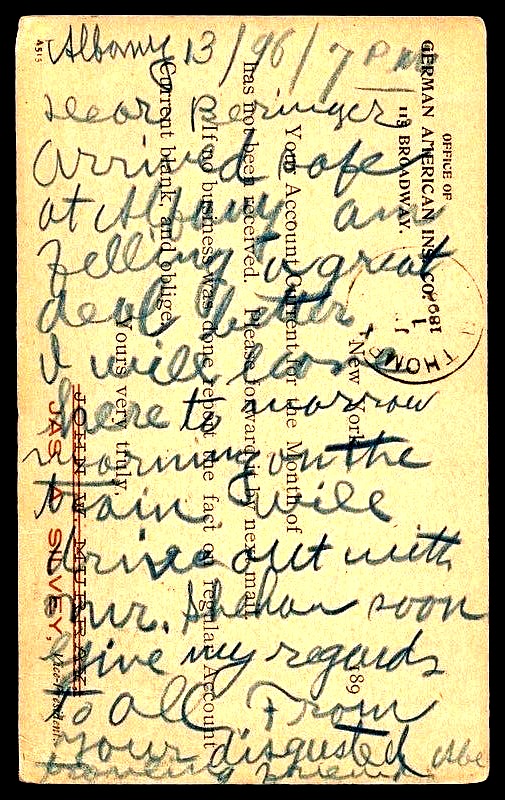 Albany 13/96/7 PM
Dear Beringer
arrived safe
at Albany am
felling a great
deal better
I will leave
here to morrow
morning on the
train. will
drive out with
mr. Shehan soon
give my regards
to all From
your disgusted Abe
traveling friend
OFFICE OF
GERMAN AMERICAN INS. CO.
113 BROADWAY.
New York, 189
Your Account Current for the Month of
has not been received. Please forward it by next mail.
If no business was done report the fact on regular Account
Current blank, and oblige
Yours very truly,
JOHN W. MURRAY,
JAS. A. SILVEY,
Vice-President.
A515
THOM